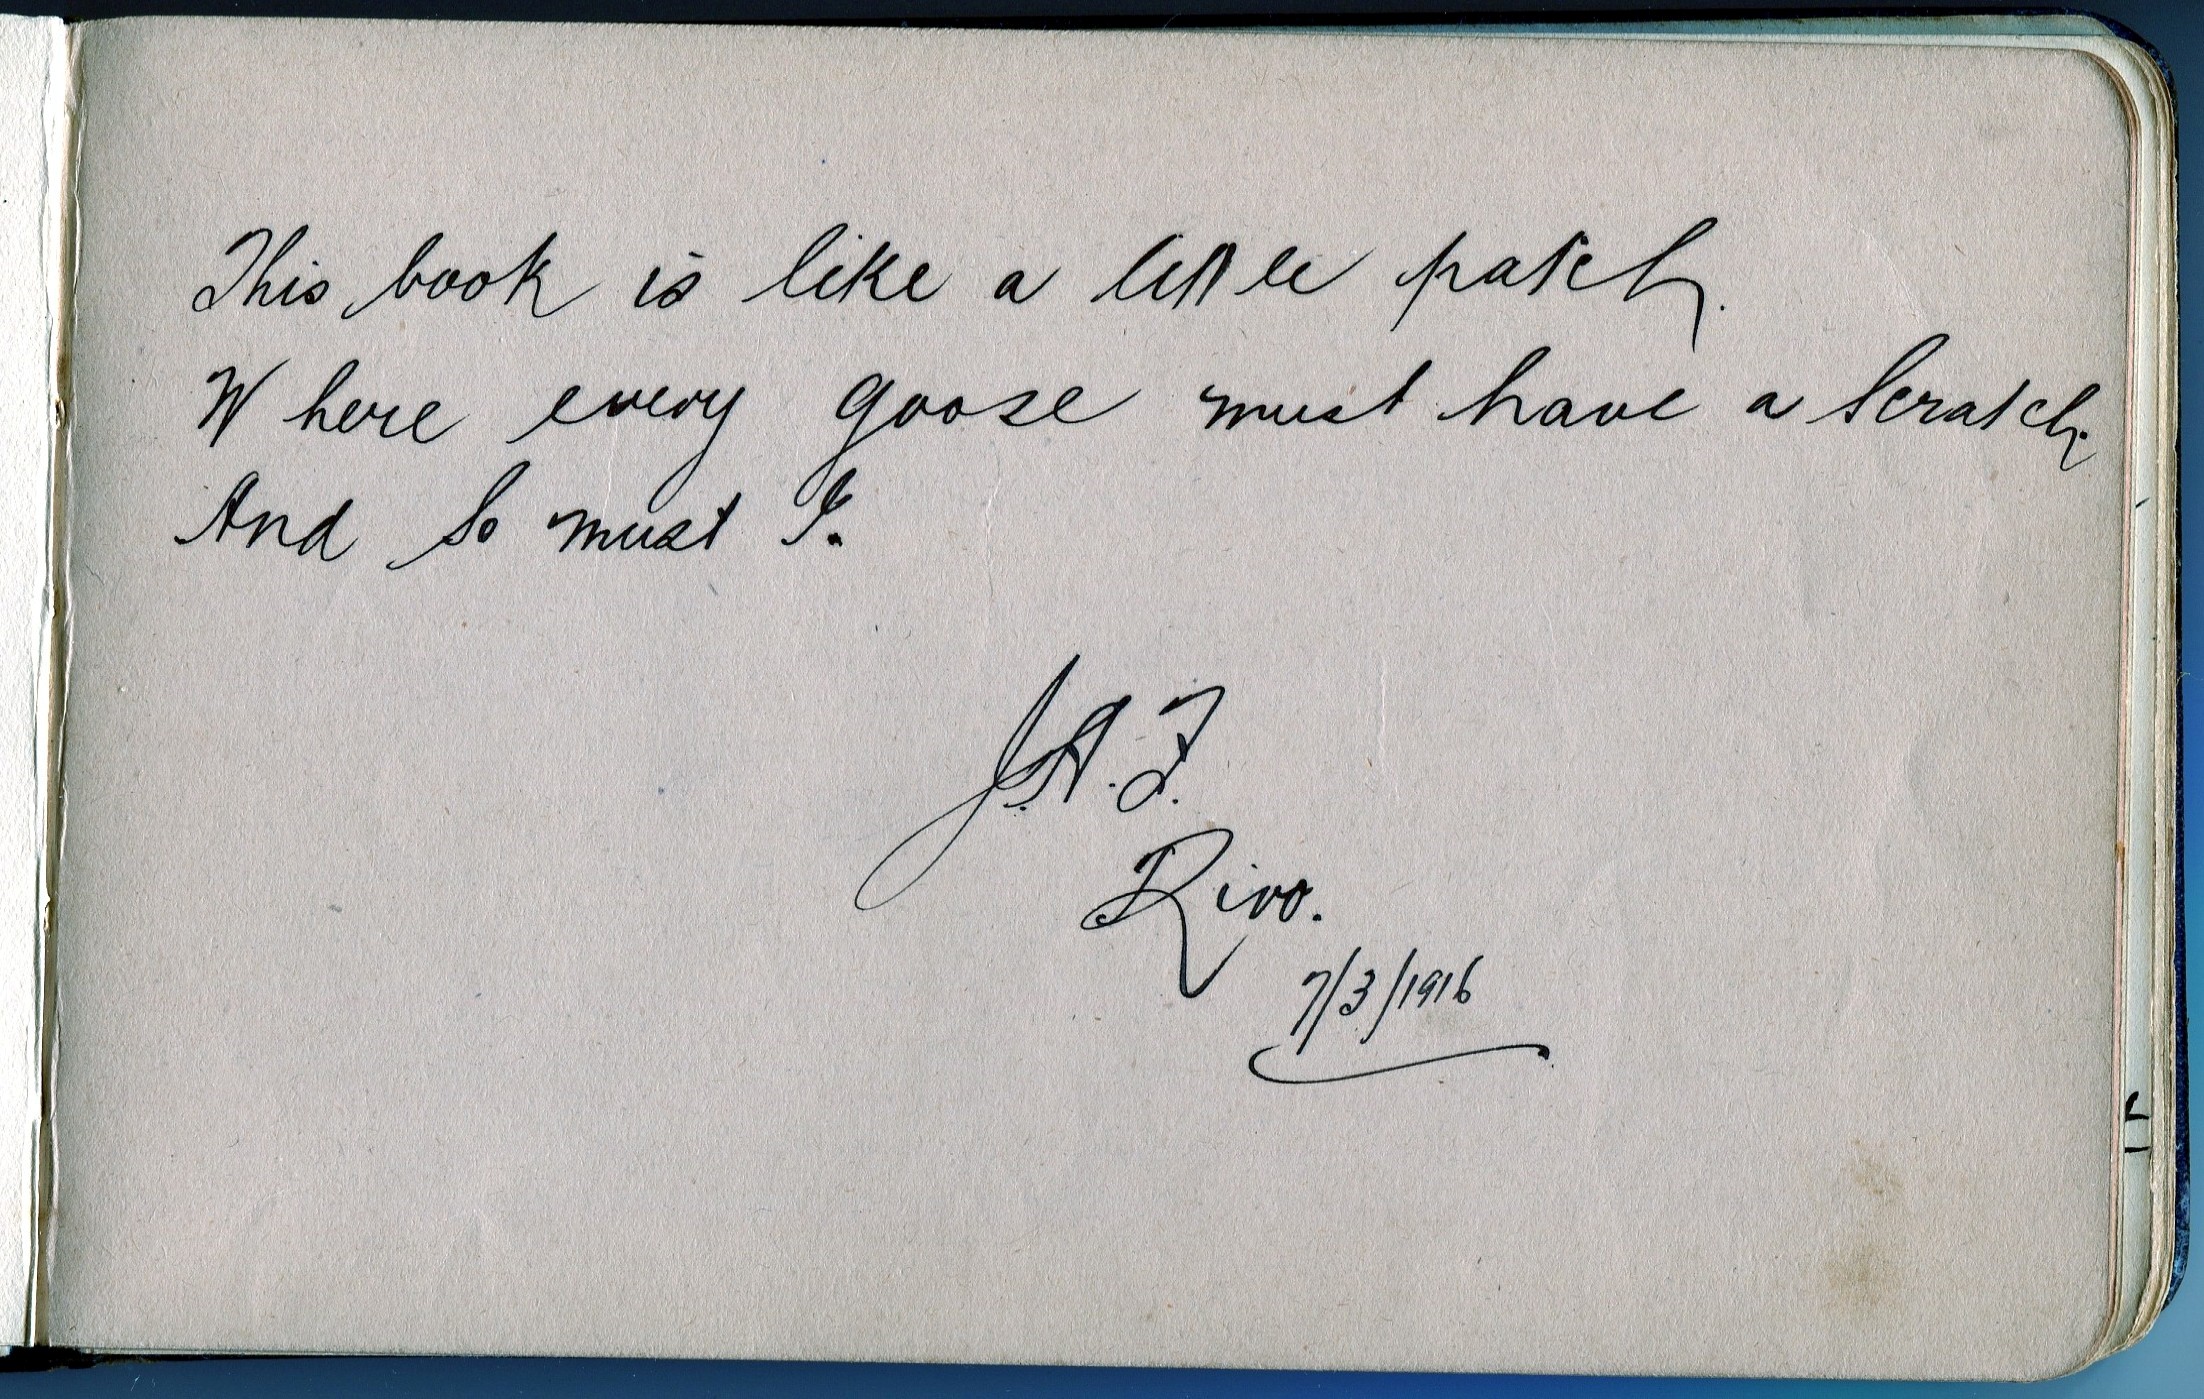 This book is like a little patch.
Where every goose must have a scratch.
And so must I.
J.A.F.
Rivo.
7/3/1916